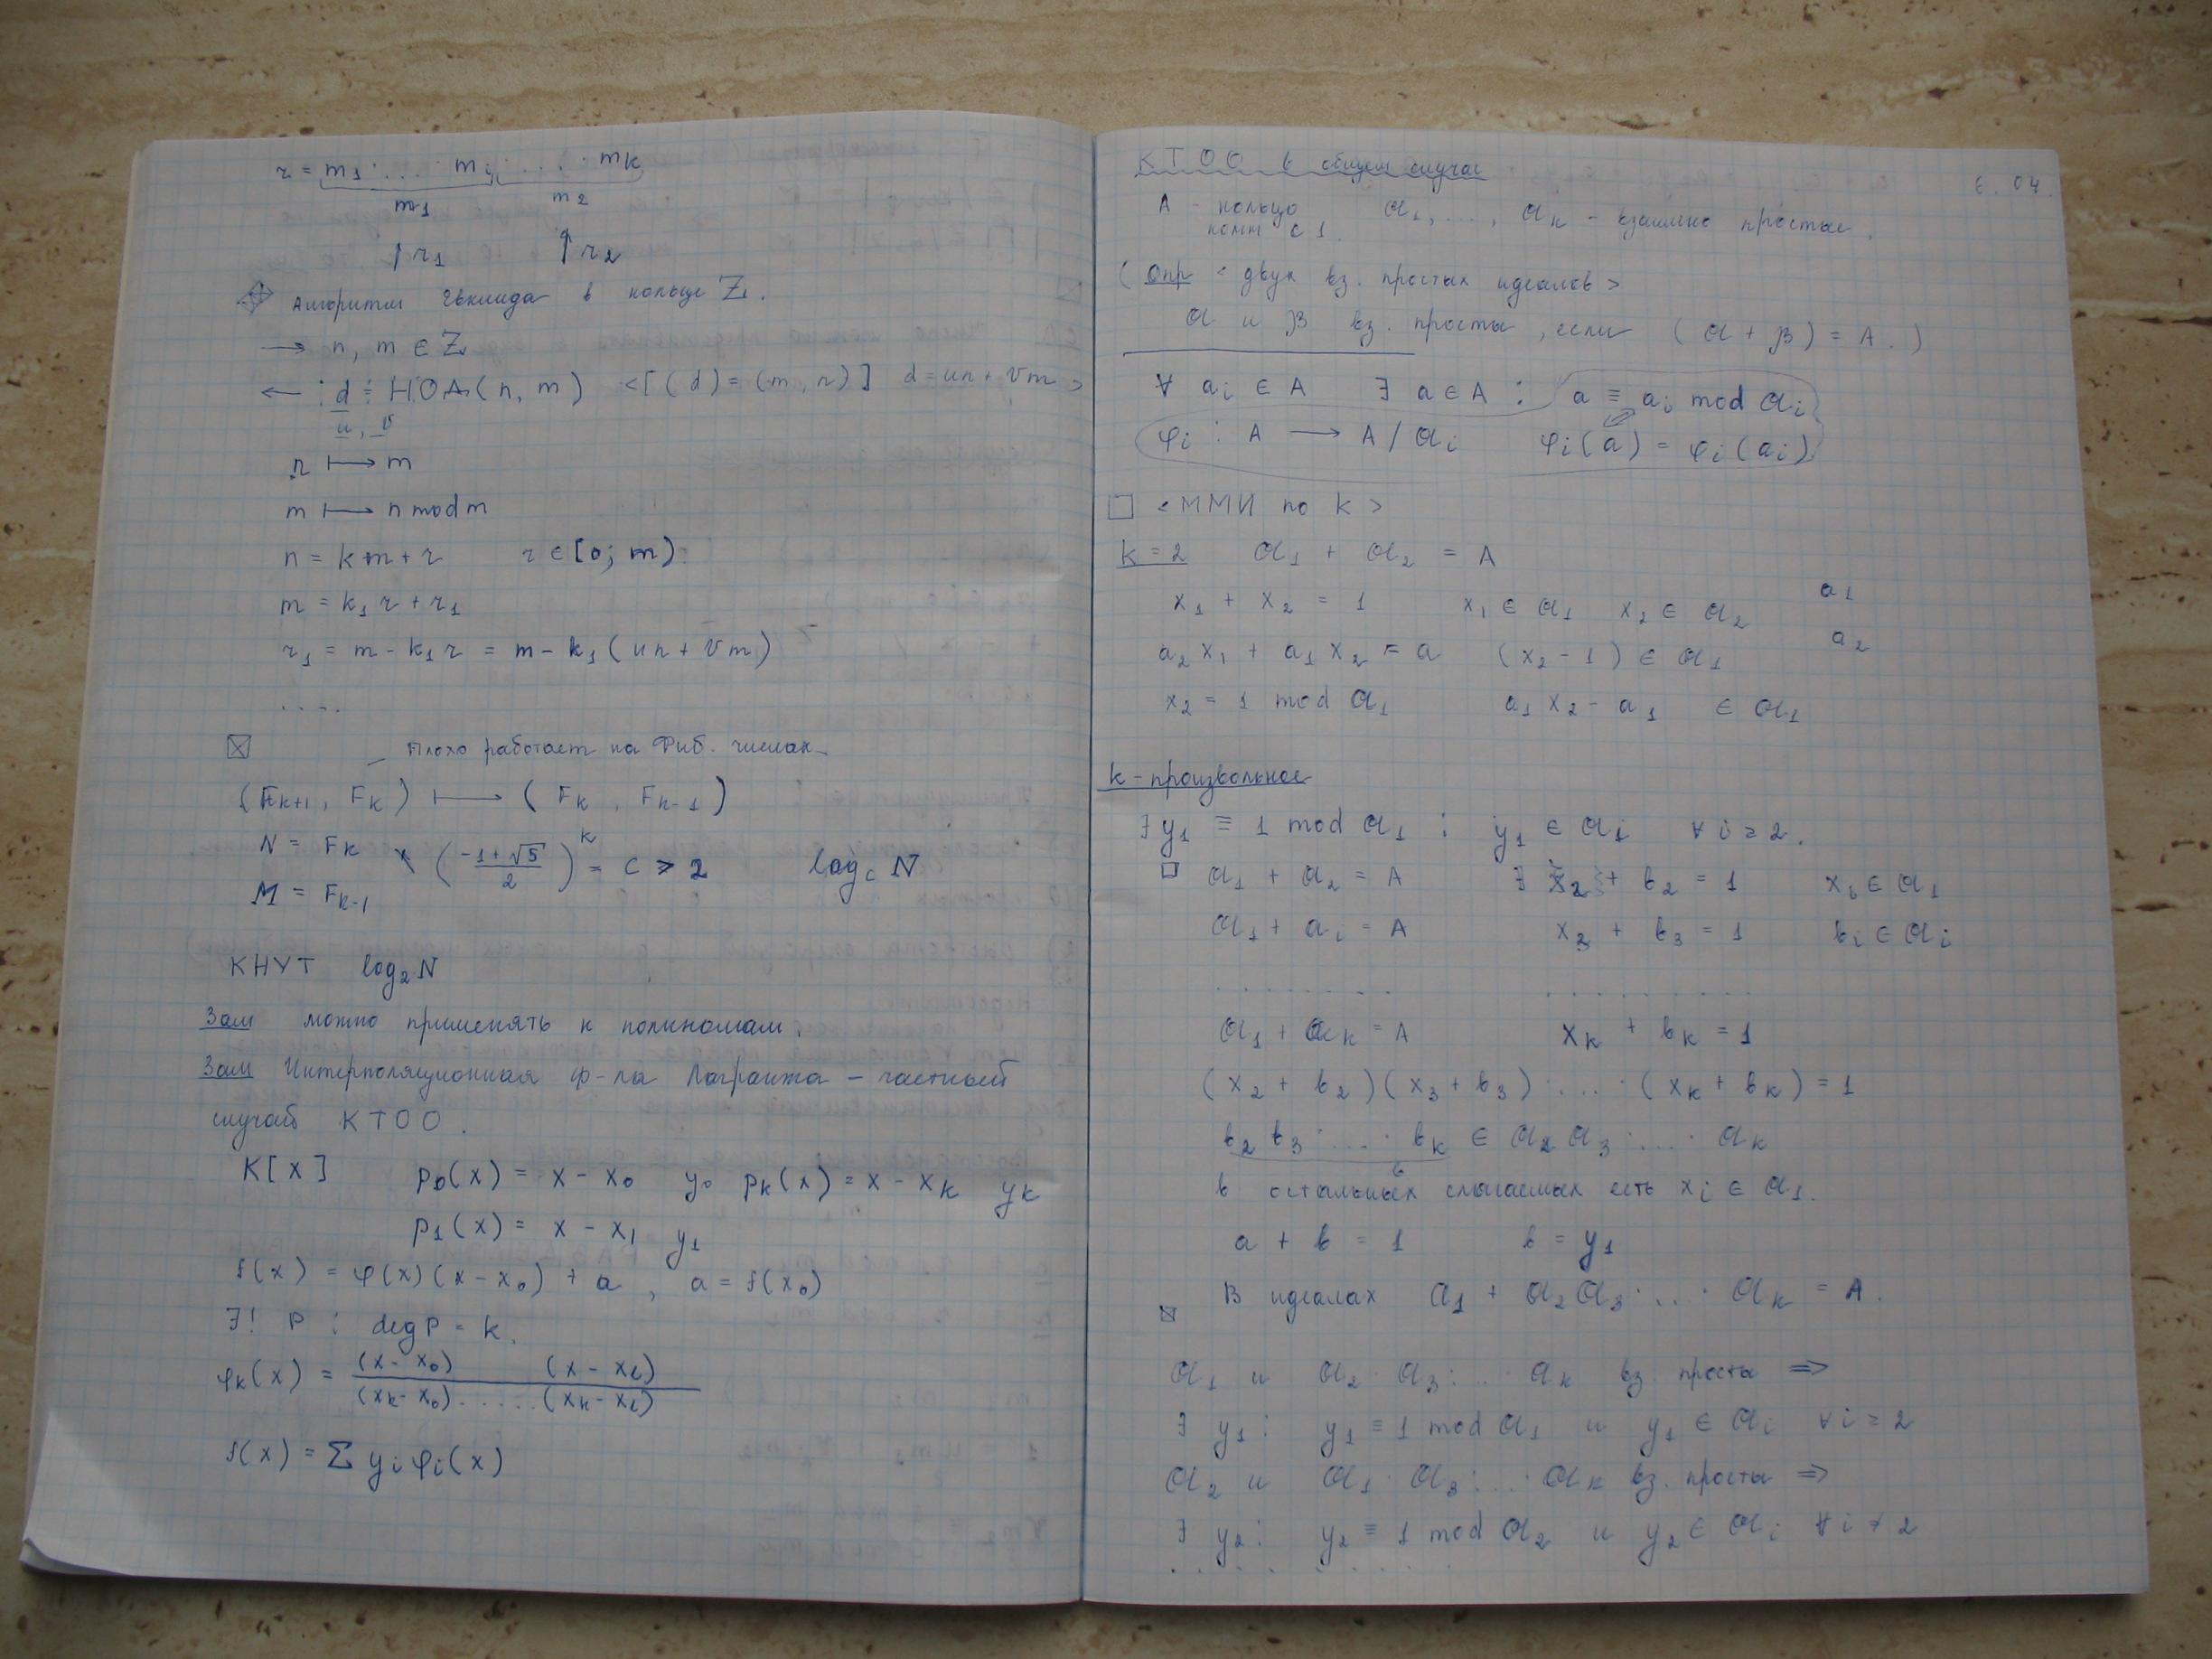 r = m₁ · … · mᵢ · … · mₖ
m₁ m₂
↑ r₁ ↑ r₂
Алгоритм Евклида в кольце ℤ.
→ n, m ∈ ℤ
← : d = НОД(n, m) <[(d) = (m, n)] d = un + vm>
u, v
n ⟼ m
m ⟼ n mod m
n = km + r r ∈ [0; m)
m = k₁r + r₁
r₁ = m − k₁r = m − k₁(un + vm)
....
Плохо работает на Фиб. числах
(Fₖ₊₁, Fₖ) ⟼ (Fₖ, Fₖ₋₁)
N = Fₖ ((−1+√5)/2)ᵏ = c ≥ 2 log_c N
M = Fₖ₋₁
КНУТ log₂N
Зам можно применять к полиномам.
Зам Интерполяционная ф-ла Лагранжа – частный
случай КТОО.
K[x] p₀(x) = x − x₀ y₀ pₖ(x) = x − xₖ yₖ
p₁(x) = x − x₁ y₁
f(x) = φ(x)(x − x₀) + a, a = f(x₀)
∃! P : deg P = k.
φₖ(x) = (x − x₀) (x − x_l) / (xₖ − x₀) ..... (xₖ − x_l)
f(x) = Σ yᵢ φᵢ(x)
КТОО в общем случае
6.04.
A – кольцо 𝔞₁, ..., 𝔞ₖ – взаимно простые.
комм с 1.
(Опр <двух вз. простых идеалов>
𝔞 и β вз. просты, если (𝔞 + β) = A.)
∀ aᵢ ∈ A ∃ a ∈ A : a ≡ aᵢ mod 𝔞ᵢ
φᵢ : A ⟶ A / 𝔞ᵢ φᵢ(a) = φᵢ(aᵢ)
□ <ММИ по k>
k = 2 𝔞₁ + 𝔞₂ = A
x₁ + x₂ = 1 x₁ ∈ 𝔞₁ x₂ ∈ 𝔞₂ a₁
a₂x₁ + a₁x₂ = a (x₂ − 1) ∈ 𝔞₁ a₂
x₂ = 1 mod 𝔞₁ a₁x₂ − a₁ ∈ 𝔞₁
k – произвольное
∃ y₁ ≡ 1 mod 𝔞₁ : y₁ ∈ 𝔞ᵢ ∀ i ≥ 2.
□ 𝔞₁ + 𝔞₂ = A ∃ x₂ + b₂ = 1 xᵢ ∈ 𝔞₁
𝔞₁ + 𝔞ᵢ = A x₃ + b₃ = 1 bᵢ ∈ 𝔞ᵢ
. . . . . . . . . . . . . . . .
𝔞₁ + 𝔞ₖ = A xₖ + bₖ = 1
(x₂ + b₂)(x₃ + b₃) · ... · (xₖ + bₖ) = 1
b₂b₃ · ... · bₖ ∈ 𝔞₂𝔞₃ · ... · 𝔞ₖ
b
в остальных слагаемых есть xᵢ ∈ 𝔞₁.
a + b = 1 b = y₁
В идеалах 𝔞₁ + 𝔞₂𝔞₃ · ... · 𝔞ₖ = A.
𝔞₁ и 𝔞₂ · 𝔞₃ · ... · 𝔞ₖ вз. просты ⇒
∃ y₁ : y₁ ≡ 1 mod 𝔞₁ и y₁ ∈ 𝔞ᵢ ∀ i ≥ 2
𝔞₂ и 𝔞₁ · 𝔞₃ · ... · 𝔞ₖ вз. просты ⇒
∃ y₂ : y₂ ≡ 1 mod 𝔞₂ и y₂ ∈ 𝔞ᵢ ∀ i ≠ 2
. . . . . . . . .